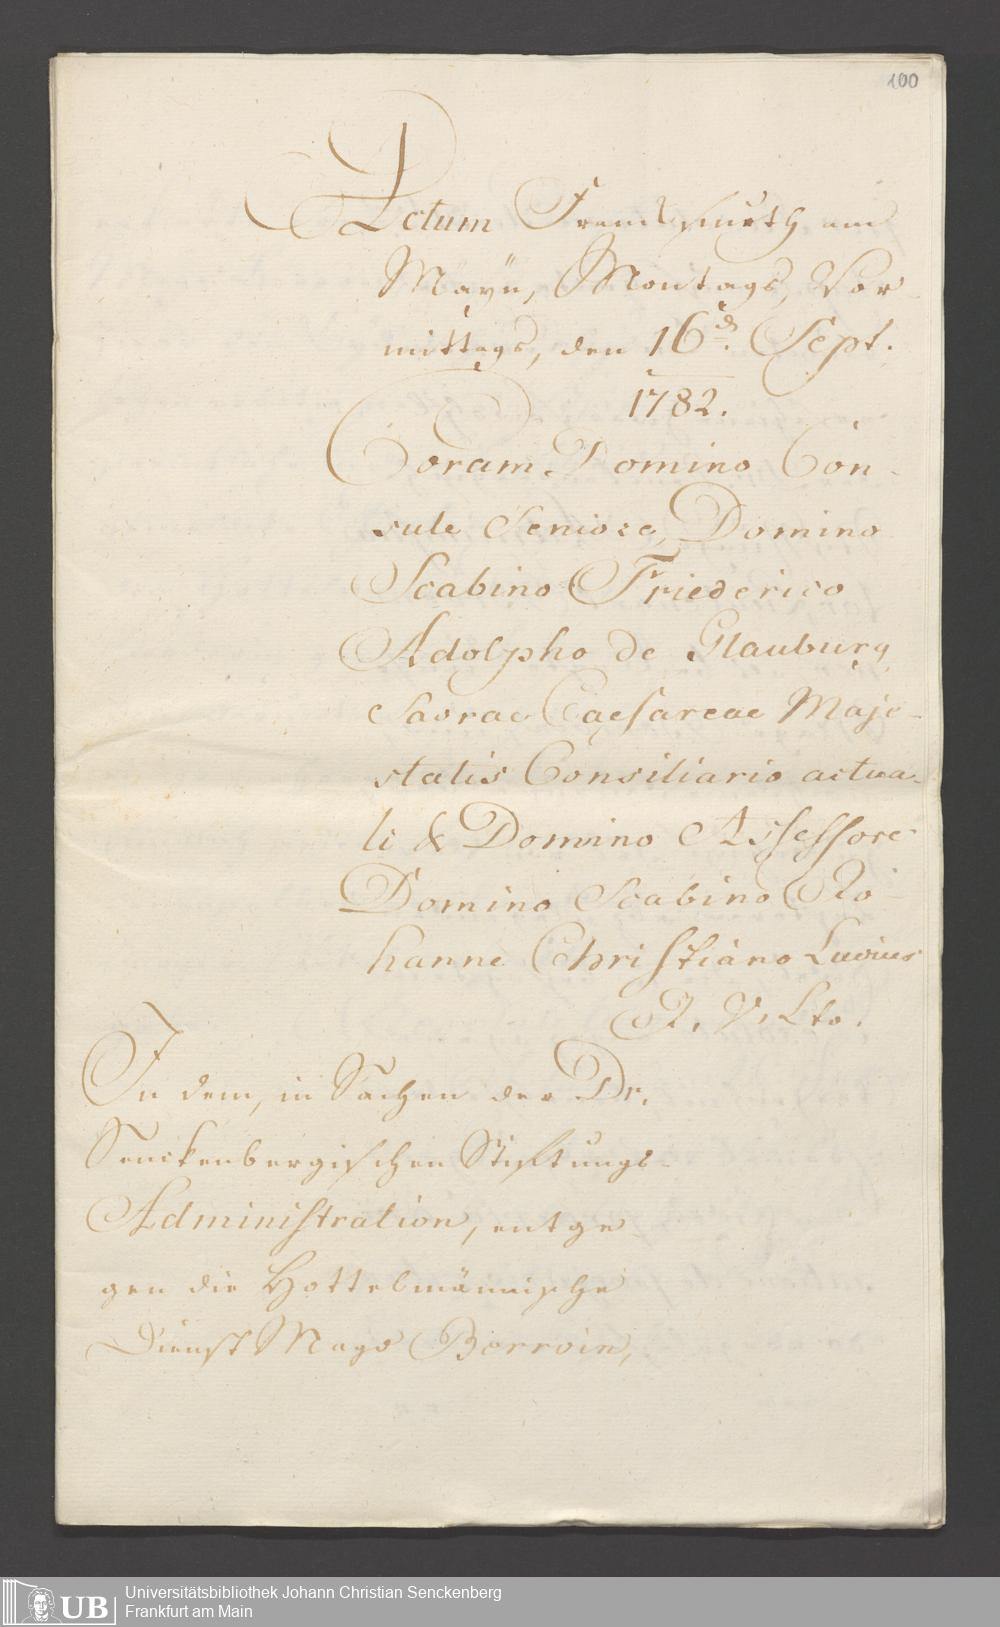 100
Actum Franckfurth am
Mayn, Montags, Vor
mittags, den 16d. Sept.
1782.
Coram Domino Con-
sule Seniore, Domino
Scabino Friederico
Adolpho de Glauburg,
Sacrae Caesareae Maje-
statis Consiliario actua-
li & Domino Assessore
Domino Scabino Jo-
hanne Christiano Lucius
J. V. Lto.
In dem, in Sachen der Dr.
Senckenbergischen Stiftungs-
Administration, entge
gen die Hottelmännische
Dienst Magd
UB
Universitätsbibliothek Johann Christian Senckenberg
Frankfurt am Main